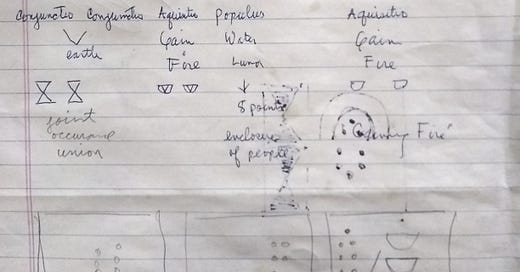 Conjunctio Conjunctio Aquisitio Populus Aquisitio
Gain Water Gain
earth
Fire Lunar Fire
joint 8 points
occurance enclosure Fire
union of people